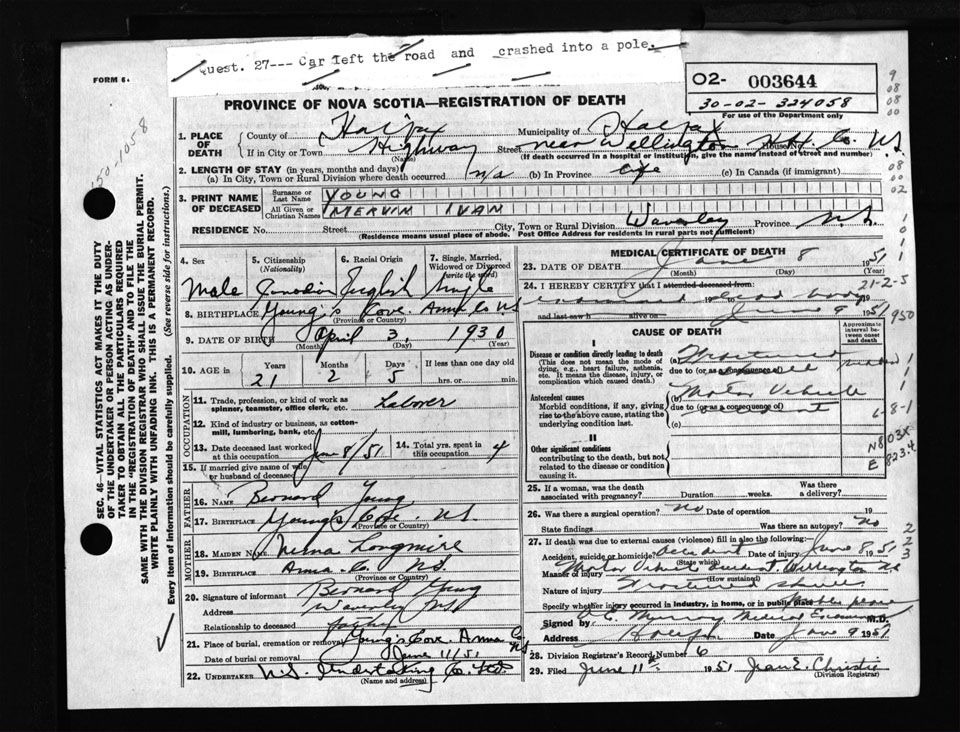 Quest. 27--- Car left the road and crashed into a pole.
FORM 6.
O2- 003644
30-02-324058
For use of the Department only
PROVINCE OF NOVA SCOTIA—REGISTRATION OF DEATH
1. PLACE OF DEATH County of Halifax Municipality of Halifax
If in City or Town Highway Street near Wellington House No. Hfx Co. N.S.
(Name) (If death occurred in a hospital or institution, give the name instead of street and number)
2. LENGTH OF STAY (in years, months and days)
(a) In City, Town or Rural Division where death occurred n/a (b) In Province Life (c) In Canada (if immigrant)
3. PRINT NAME OF DECEASED Surname or Last Name YOUNG
All Given or Christian Names MERVIN IVAN
RESIDENCE No. Street City, Town or Rural Division Waverley Province N.S.
(Residence means usual place of abode. Post Office Address for residents in rural parts not sufficient)
4. Sex 5. Citizenship (Nationality) 6. Racial Origin 7. Single, Married, Widowed or Divorced (write the word)
Male Canadian English Single
8. BIRTHPLACE Young's Cove. Anna Co NS
(Province or Country)
9. DATE OF BIRTH April 3, 1930
(Month) (Day) (Year)
10. AGE in Years Months Days If less than one day
21 2 5 hrs. or min.
OCCUPATION
11. Trade, profession, or kind of work as spinner, teamster, office clerk, etc. Laborer
12. Kind of industry or business, as cotton-mill, lumbering, bank, etc.
13. Date deceased last worked at this occupation June 8/51 14. Total yrs. spent in this occupation 4
15. If married give name of wife or husband of deceased
FATHER
16. NAME Bernard Young
17. BIRTHPLACE Young's Cove. N.S.
(Province or Country)
MOTHER
18. MAIDEN NAME Longmire
19. BIRTHPLACE Anna. Co. N.S.
(Province or Country)
20. Signature of informant Bernard Young
Address Waverley N.S.
Relationship to deceased father
21. Place of burial, cremation or removal Young's Cove. Anna Co. NS
Date of burial or removal June 11/51
22. UNDERTAKER N.S. Undertaking Co. Ltd.
(Name and address)
MEDICAL CERTIFICATE OF DEATH
23. DATE OF DEATH June 8 1951
(Month) (Day) (Year)
24. I HEREBY CERTIFY that I attended deceased from:
dead body
and last saw h alive on June 9 1951
21-2-5
950
CAUSE OF DEATH
Approximate interval between onset and death
I
Disease or condition directly leading to death
(This does not mean the mode of dying, e.g., heart failure, asthenia, etc. It means the disease, injury, or complication which caused death.)
(a) Fractured
due to (or as a consequence of) skull
Antecedent causes
Morbid conditions, if any, giving rise to the above cause, stating the underlying condition last.
(b) Motor Vehicle
due to (or as a consequence of) accident
(c)
II
Other significant conditions
contributing to the death, but not related to the disease or condition causing it.
N803X
E 823.4
25. If a woman, was the death associated with pregnancy? Duration weeks. Was there a delivery?
26. Was there a surgical operation? no Date of operation 19
State findings Was there an autopsy? no
27. If death was due to external causes (violence) fill in also the following:
Accident, suicide or homicide? accident Date of injury June 8, 51
(State which)
Manner of injury Motor Vehicle accident. Wellington NS
(How sustained)
Nature of injury Fractured skull
Specify whether injury occurred in industry, in home, or in public place Public place
Signed by E. Murray Medical Examiner M.D.
Address Halifax Date June 9 1951
28. Division Registrar's Record Number 6
29. Filed June 11th 1951 Jean E. Christie
(Division Registrar)
SEC. 46—VITAL STATISTICS ACT MAKES IT THE DUTY
OF THE UNDERTAKER OR PERSON ACTING AS UNDER-
TAKER TO OBTAIN ALL THE PARTICULARS REQUIRED
IN THE "REGISTRATION OF DEATH" AND TO FILE THE
SAME WITH THE DIVISION REGISTRAR WHO SHALL ISSUE THE BURIAL PERMIT.
WRITE PLAINLY WITH UNFADING INK. THIS IS A PERMANENT RECORD.
Every item of information should be carefully supplied. (See reverse side for instructions.)